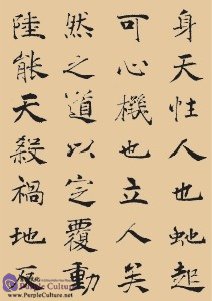 身天性人也虵起
可心機也立人
然之道以定覆動
陸能天殺禍地反
Purple Culture
www.PurpleCulture.com